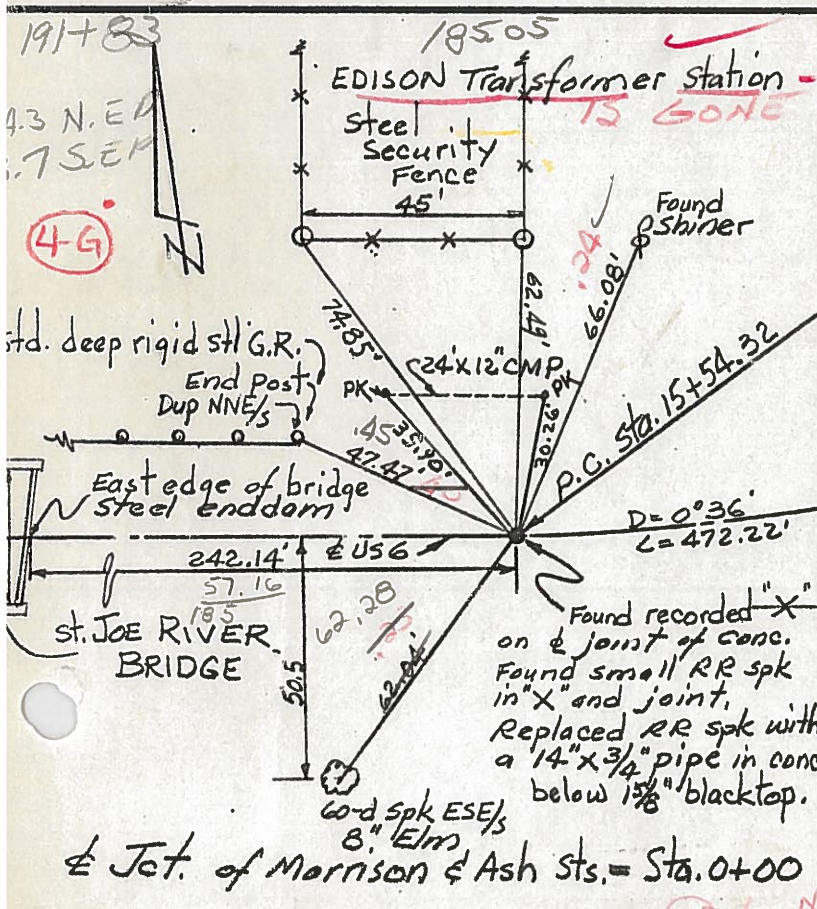 191+83
18505
EDISON Transformer Station -
IS GONE
4.3 N.E.P
.7 S.E.P
Steel
Security
Fence
45'
4-G
N
Found
Shiner
.24
66.08'
62.49'
74.85'
Std. deep rigid stl G.R.
End Post
Dup NNE/s
24'x12" CMP
PK
PK
30.26'
.45
35.90'
47.47'
P.C. Sta. 15+54.32
East edge of bridge
Steel enddam
D = 0°36'
L = 472.22'
242.14'
℄ US6
57.16
185
St. JOE RIVER
BRIDGE
62.28
62.04'
50.5
Found recorded "X"
on ℄ joint of conc.
Found small RR spk
in "X" and joint.
Replaced RR spk with
a 14" x 3/4" pipe in conc
below 1 5/8" blacktop.
60-d spk ESE/s
8" Elm
℄ Jct. of Morrison & Ash Sts. = Sta. 0+00